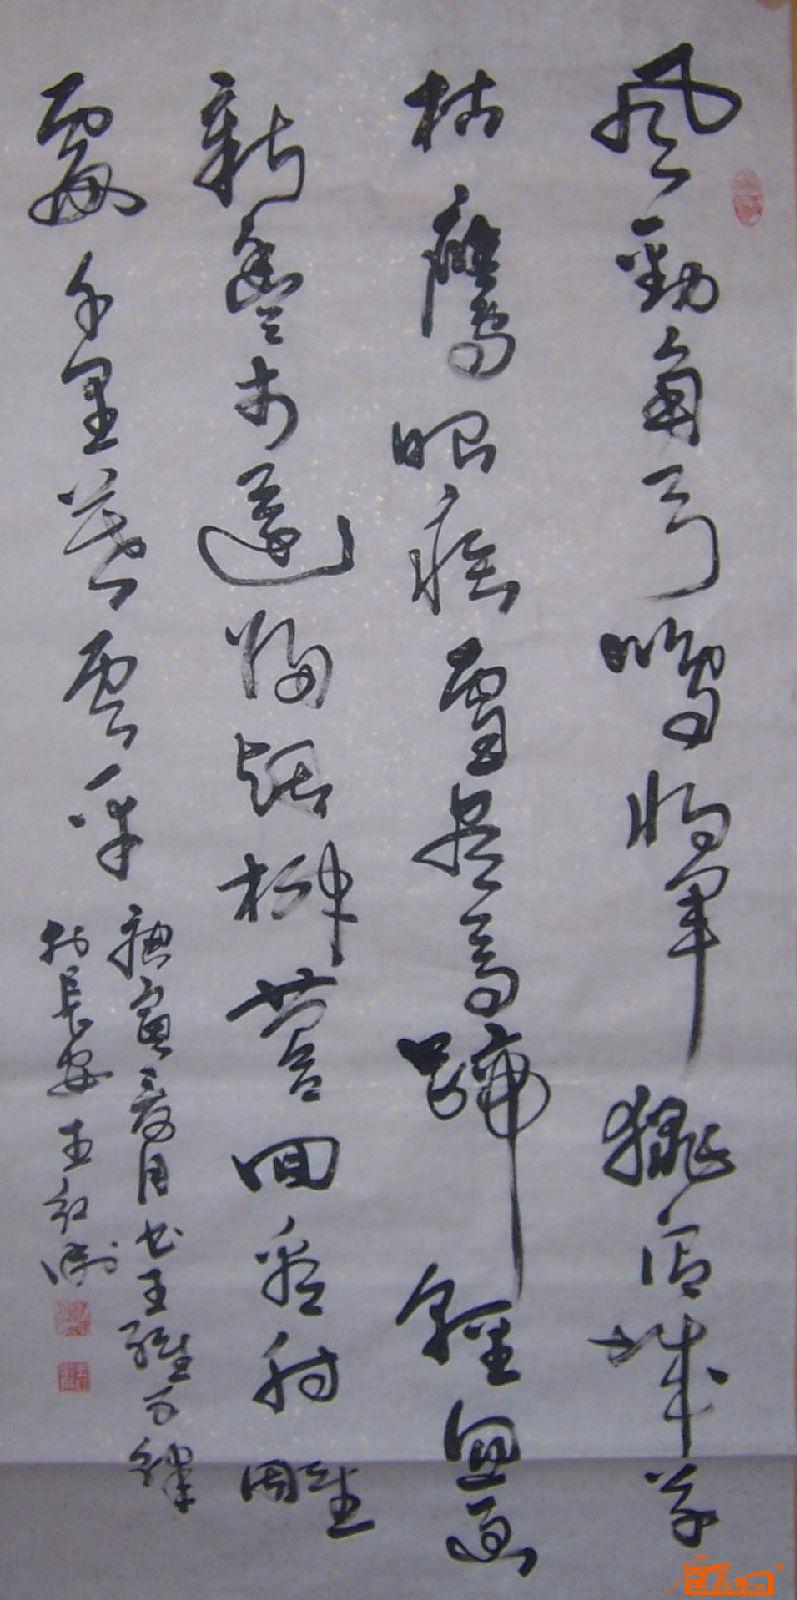 風勁角弓鳴將軍獵渭城草
枯鷹眼疾雪尽馬蹄輕忽過
新豐市還歸細柳營回看射雕
處千里暮雲平
庚寅春月书王維五律
於長安王